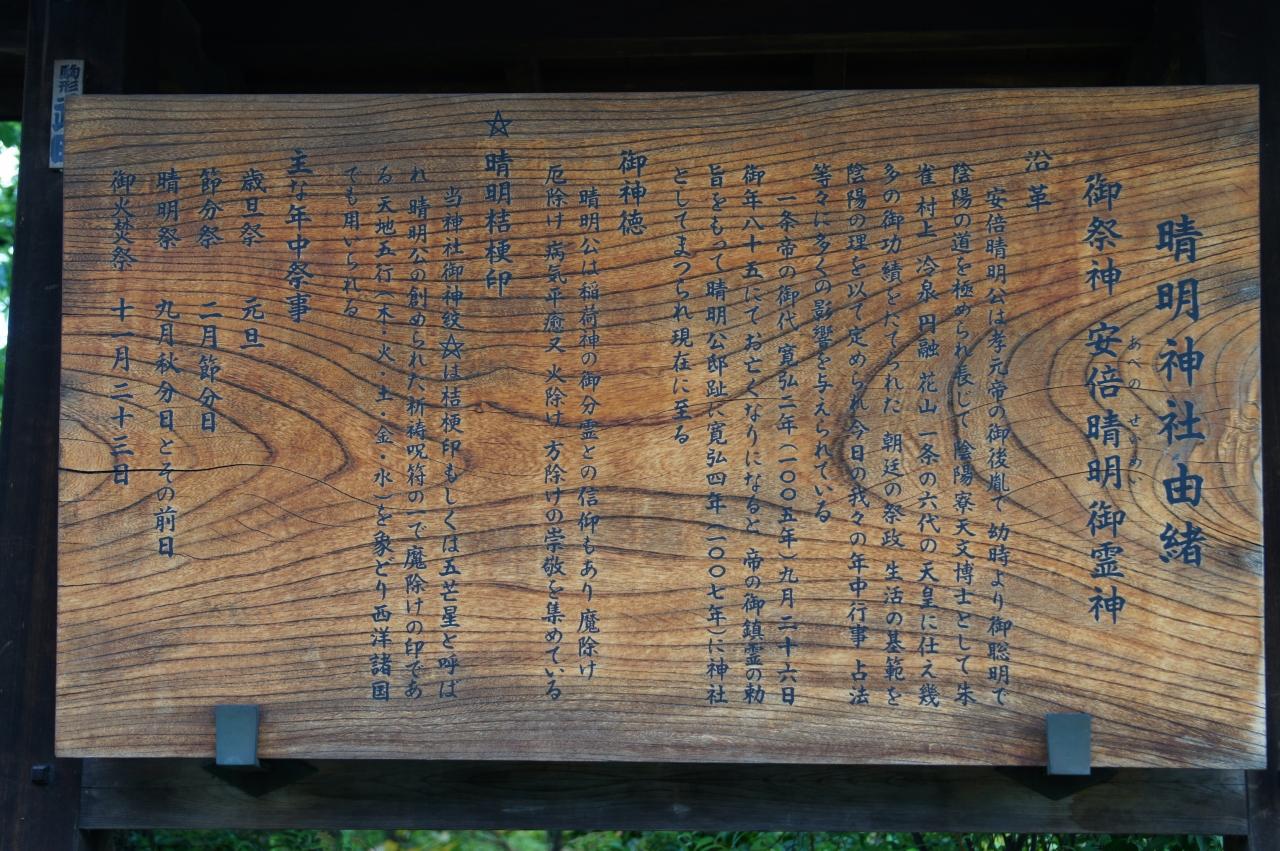 晴明神社由緒
御祭神 安倍晴明御霊神
あべの せいめい
沿革
安倍晴明公は孝元帝の御後胤で 幼時より御聡明で
陰陽の道を極められ長じて 陰陽寮天文博士として朱
雀 村上 冷泉 円融 花山 一条の六代の天皇に仕え幾
多の御功績をたてられた 朝廷の祭政 生活の基範を
陰陽の理を以て定められ今日の我々の年中行事 占法
等々に多くの影響を与えられている
一条帝の御代 寛弘二年(一〇〇五年)九月二十六日
御年八十五にてお亡くなりになると 帝の御鎮霊の勅
旨をもって晴明公邸趾に寛弘四年(一〇〇七年)に神社
としてまつられ現在に至る
御神徳
晴明公は稲荷神の御分霊との信仰もあり 魔除け
厄除け 病気平癒又 火除け 方除けの崇敬を集めている
☆晴明桔梗印
当神社御神紋☆は桔梗印もしくは五芒星と呼ば
れ 晴明公の創められた祈祷呪符の一で魔除けの印であ
る 天地五行(木・火・土・金・水)を象どり西洋諸国
でも用いられる
主な年中祭事
歳旦祭 元旦
節分祭 二月節分日
晴明祭 九月秋分日とその前日
御火焚祭 十一月二十三日
駒形